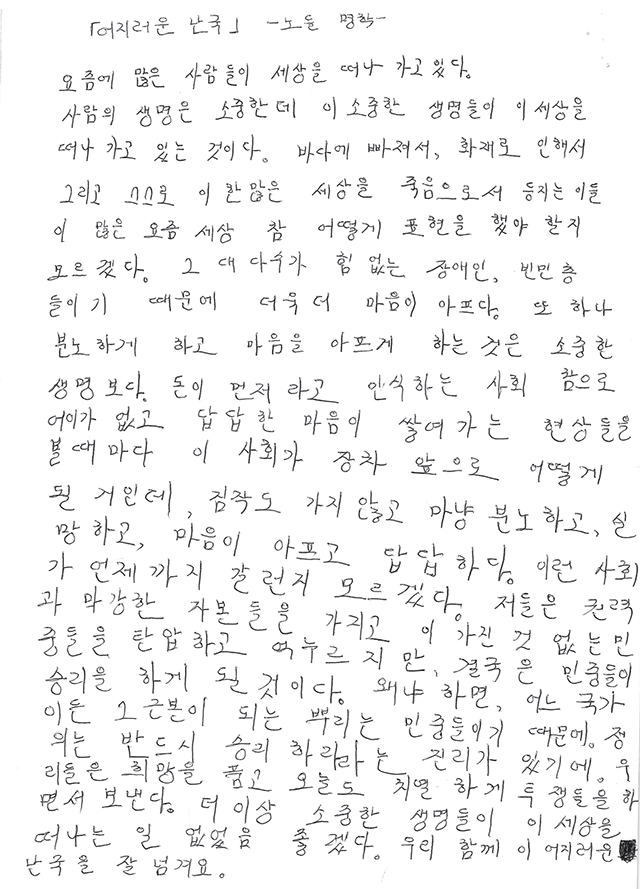 「어지러운 난국」 -노들 명학-
요즘에 많은 사람들이 세상을 떠나 가고 있다.
사람의 생명은 소중한데 이 소중한 생명들이 이 세상을
떠나 가고 있는 것이다. 바다에 빠져서, 화재로 인해서
그리고 스스로 이 한 많은 세상을 죽음으로서 등지는 이들
이 많은 요즘 세상 참 어떻게 표현을 했야 할지
모르겠다. 그 대다수가 힘 없는 장애인, 빈민층
들이기 때문에 더욱 더 마음이 아프다. 또 하나
분노하게 하고 마음을 아프게 하는 것은 소중한
생명보다. 돈이 먼저라고 인식하는 사회 참으로
어이가 없고 답답한 마음이 쌓여가는 현상들을
볼 때마다 이 사회가 장차 앞으로 어떻게
될 거인데, 짐작도 가지 않고 마냥 분노하고, 실
망하고, 마음이 아프고 답답하다. 이런 사회
가 언제까지 갈런지 모르겠다. 저들은 권력
과 막강한 자본들을 가지고 이 가진 것 없는 민
중들을 탄압하고 억누르지만, 결국은 민중들이
승리을 하게 될 것이다. 왜냐하면, 어느 국가
이든 그 근본이 되는 뿌리는 민중들이기 때문에. 정
의는 반드시 승리 하리라는 진리가 있기에. 우
리들은 희망을 품고 오늘도 치열하게 투쟁들을 하
면서 보낸다. 더 이상 소중한 생명들이 이 세상을
떠나는 일 없었음 좋겠다. 우리 함께 이 어지러운
난국을 잘 넘겨요.